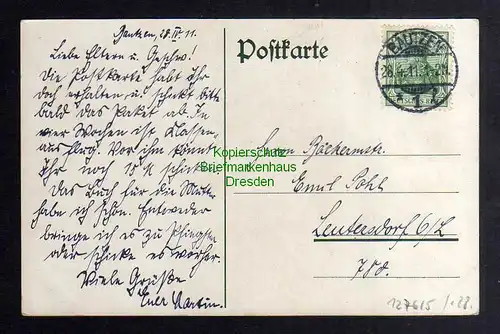 Bautzen, 28.IV.11.
Liebe Eltern u. Geschw.!
Die Postkarte habt Ihr
doch erhalten u. schickt bitte
bald das Paket ab. In
vier Wochen ist Klassen-
ausflug. Vor ihm könnt
Ihr noch 10 M schicken.
Das Buch für die Mutter
habe ich schon. Entweder
bringe ich es zu Pfingsten
oder schicke es vorher.
Viele Grüße
Euer Martin.
Postkarte
BAUTZEN
28.4.11.
1
Herrn Bäckermstr.
Emil Pohl
Leutersdorf O/L
Kopierschutz
Briefmarkenhaus
Dresden
127615 / 128.